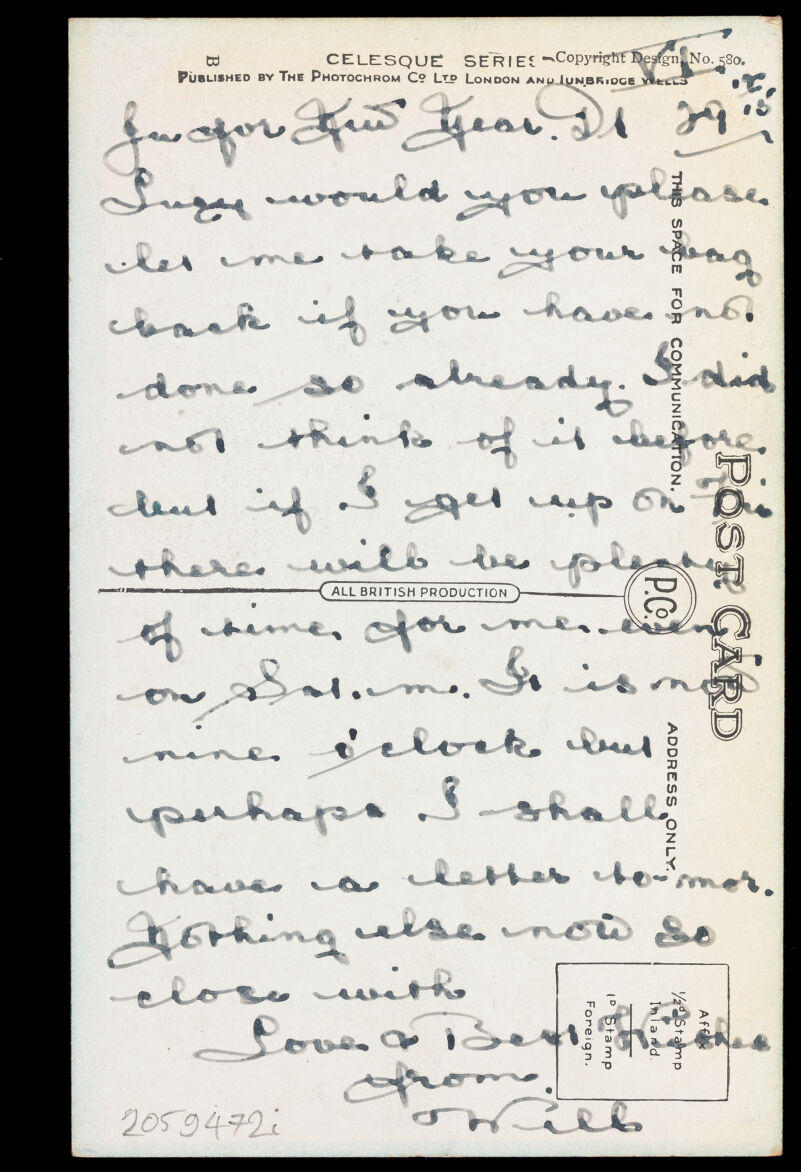 B
CELESQUE SERIES – Copyright Design, No. 580.
PUBLISHED BY THE PHOTOCHROM Co LTD LONDON AND TUNBRIDGE WELLS
VI.
29/12/15
for New Year. Dr
Lucy would you please
let me take your bag
back if you have not
done so already. I did
not think of it before
but if I get up on Fri
there will be plenty
ALL BRITISH PRODUCTION
of time for me even
on Sat. m. It is not
nine o'clock but
perhaps I shall
have a letter to-mor.
Nothing else now so
close with
Love & Best Wishes
from
Will
THIS SPACE FOR COMMUNICATION.
POST CARD
P.Co.
ADDRESS ONLY.
Affix
½d Stamp
Inland.
1D Stamp
Foreign.
2059472i